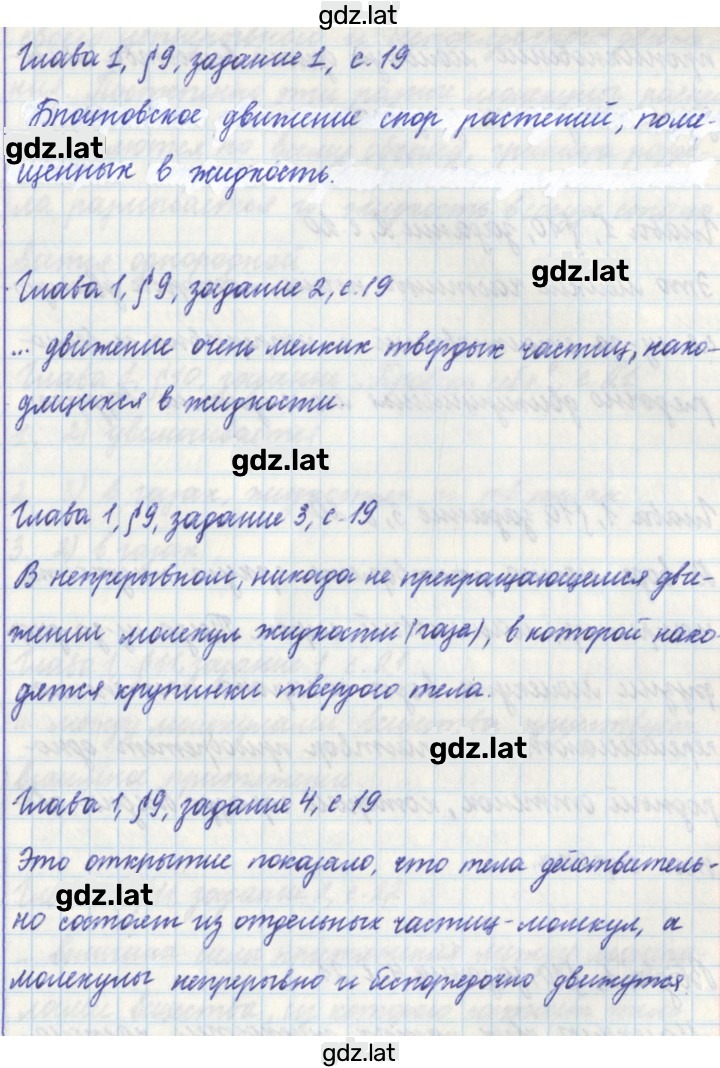 gdz.lat
Глава 1, §9, задание 1, с. 19
Броуновское движение спор растений, поме-
gdz.lat
щенных в жидкость.
gdz.lat
Глава 1, §9, задание 2, с. 19
... движение очень мелких твердых частиц, нахо-
дящихся в жидкости.
gdz.lat
Глава 1, §9, задание 3, с. 19
В непрерывном, никогда не прекращающемся дви-
жении молекул жидкости (газа), в которой нахо-
дятся крупинки твердого тела.
gdz.lat
Глава 1, §9, задание 4, с. 19
Это открытие показало, что тела действитель-
gdz.lat
но состоят из отдельных частиц-момкул, а
молекулы непрерывно и беспорядочно движутся.
gdz.lat